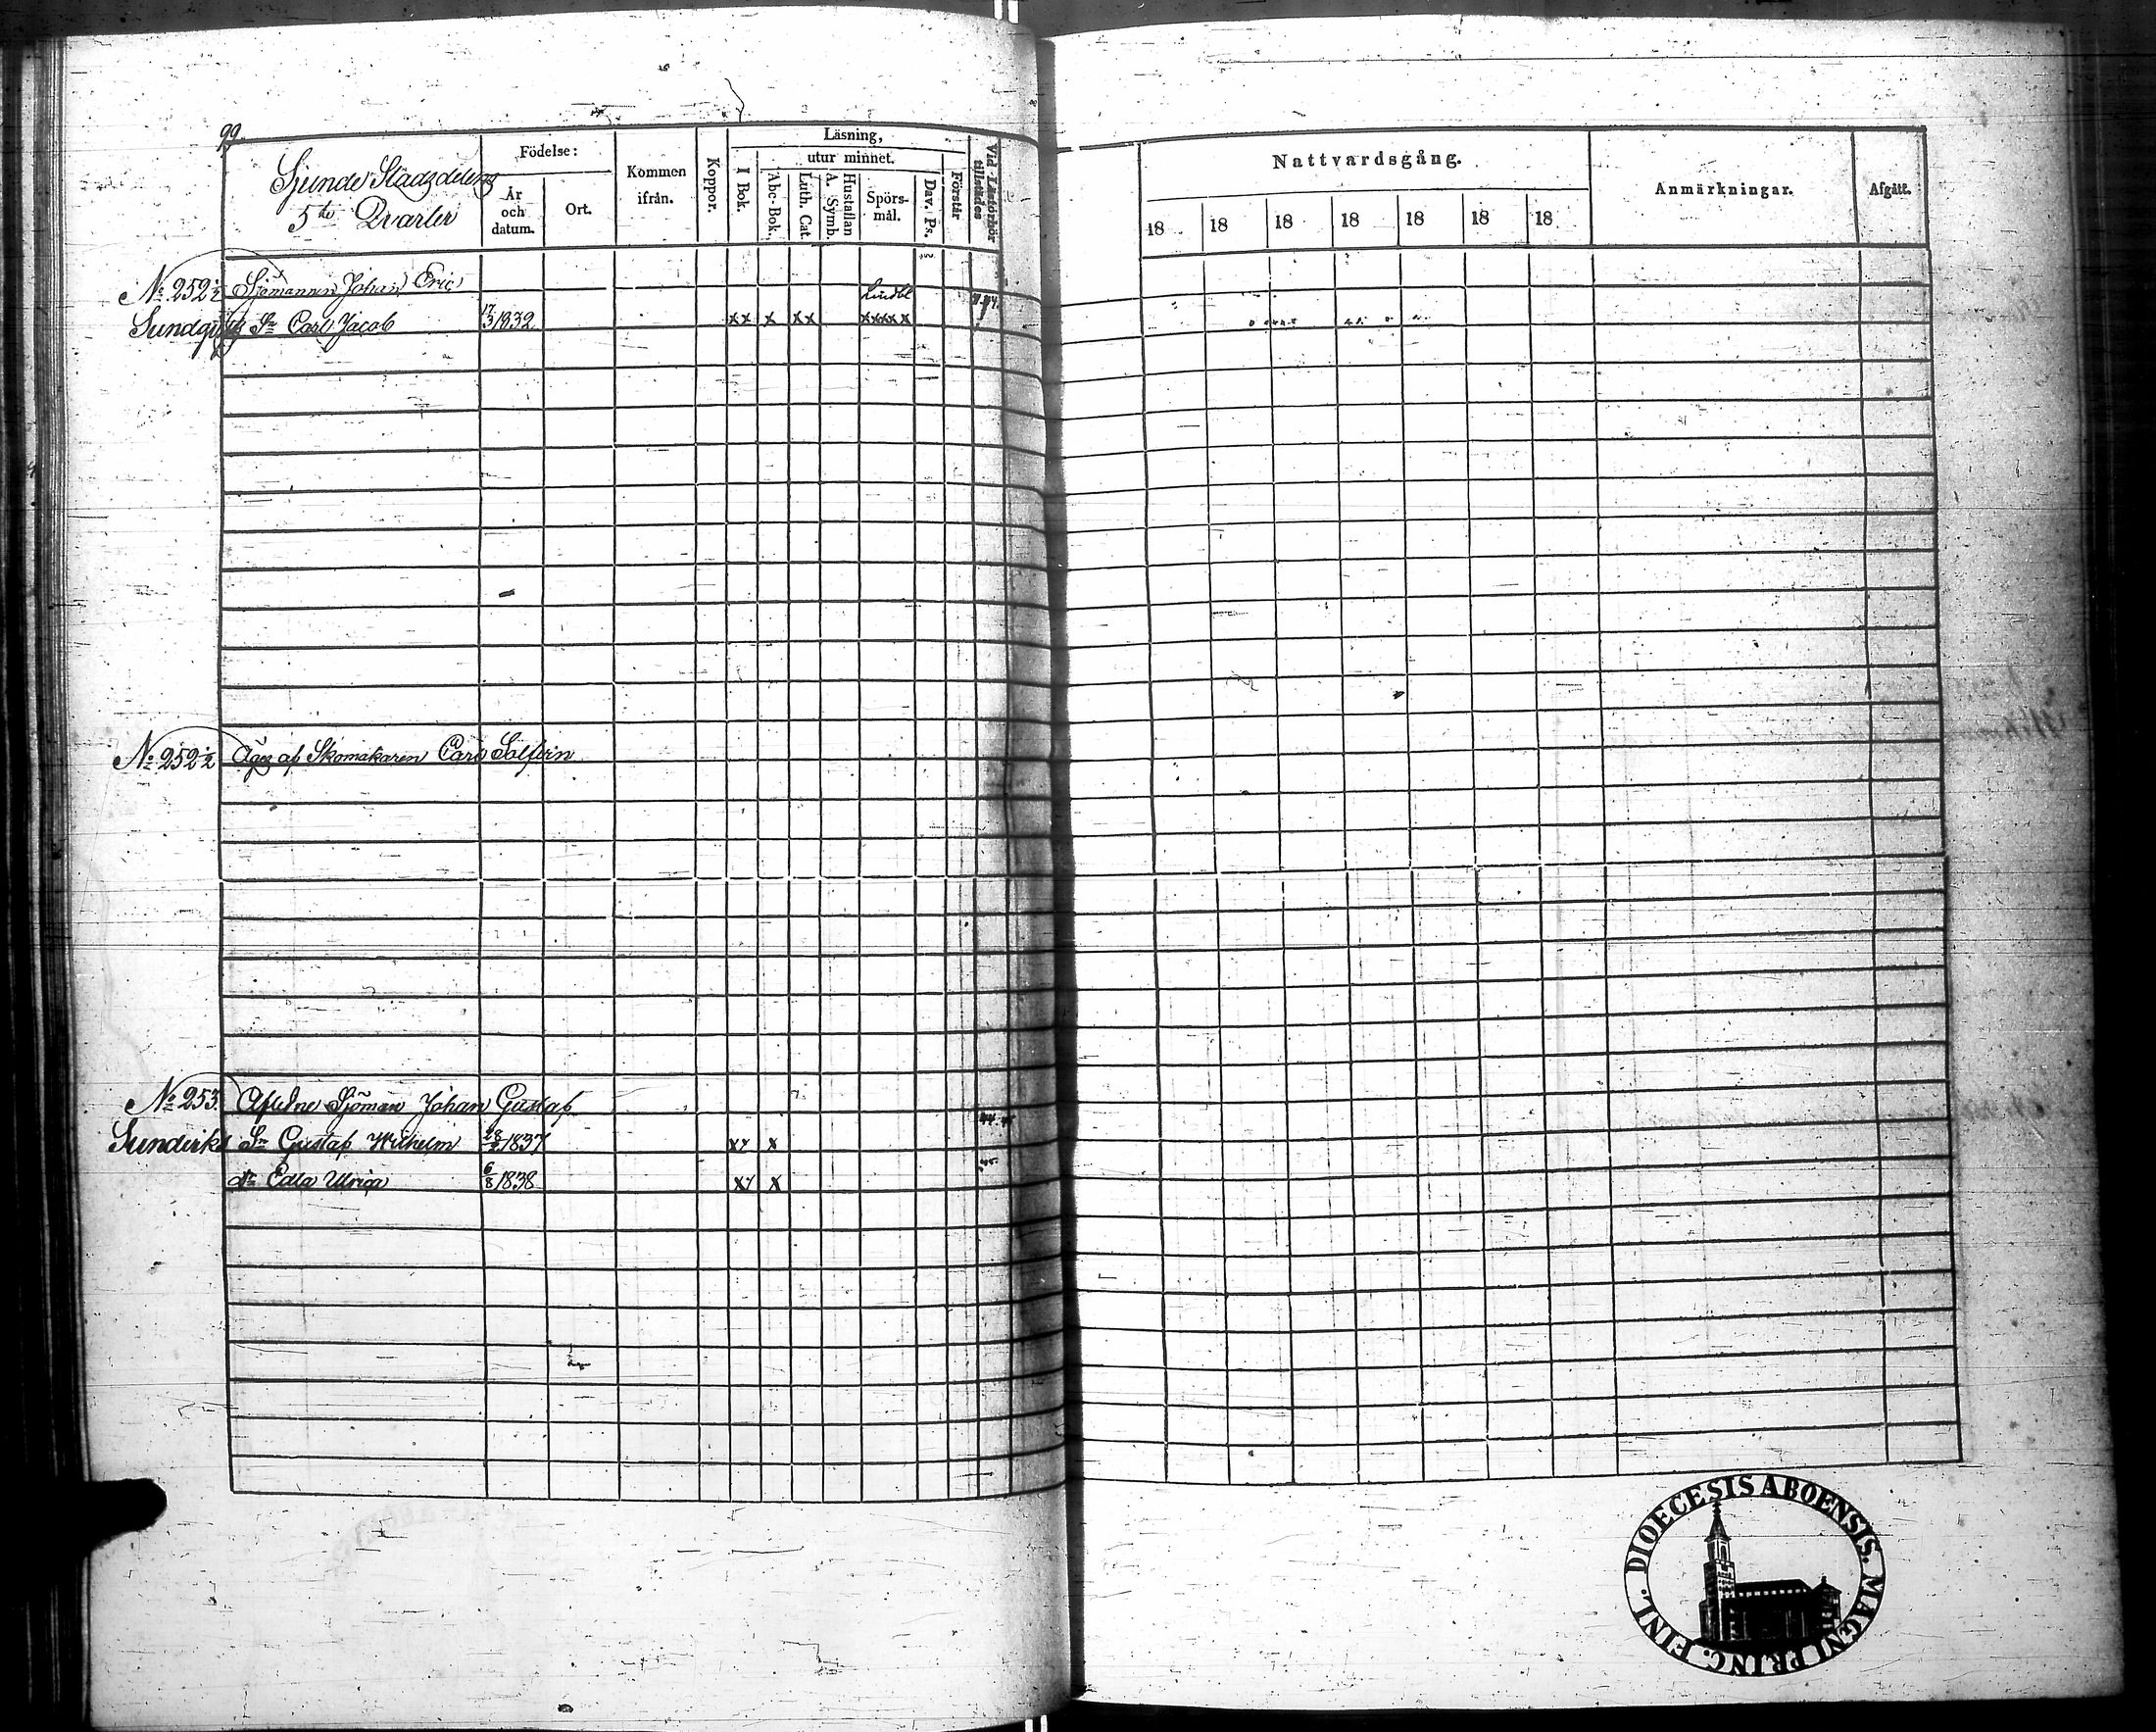 99.
Sjunde Stadsdelens
5te Qvarter
Födelse:
År och datum.
Ort.
Kommen ifrån.
Koppor.
Läsning,
utur minnet.
I Bok.
Abc-Bok.
Luth. Cat.
Hustaflan A. Symb.
Spörs-mål.
Dav. Ps.
Förstår
Vid Läsförhör tillstädes
Nattvardsgång.
18 18 18 18 18 18 18
Anmärkningar.
Afgått.
No 252½ Sjömannen Johan Eric
Sundqvists Sn Carl Jacob 17/3 1832 xx x xx xxxxx
No 252½ Äges af Skomakaren Carl
No 253. Afledne Sjöman Johan Gustaf
Sn Gustaf Wilhelm 28/2 1837 x
dr Edla Ulrica 6/8 1838 x
DIOECESIS ABOENSIS. MAGNI PRINC. FINL.